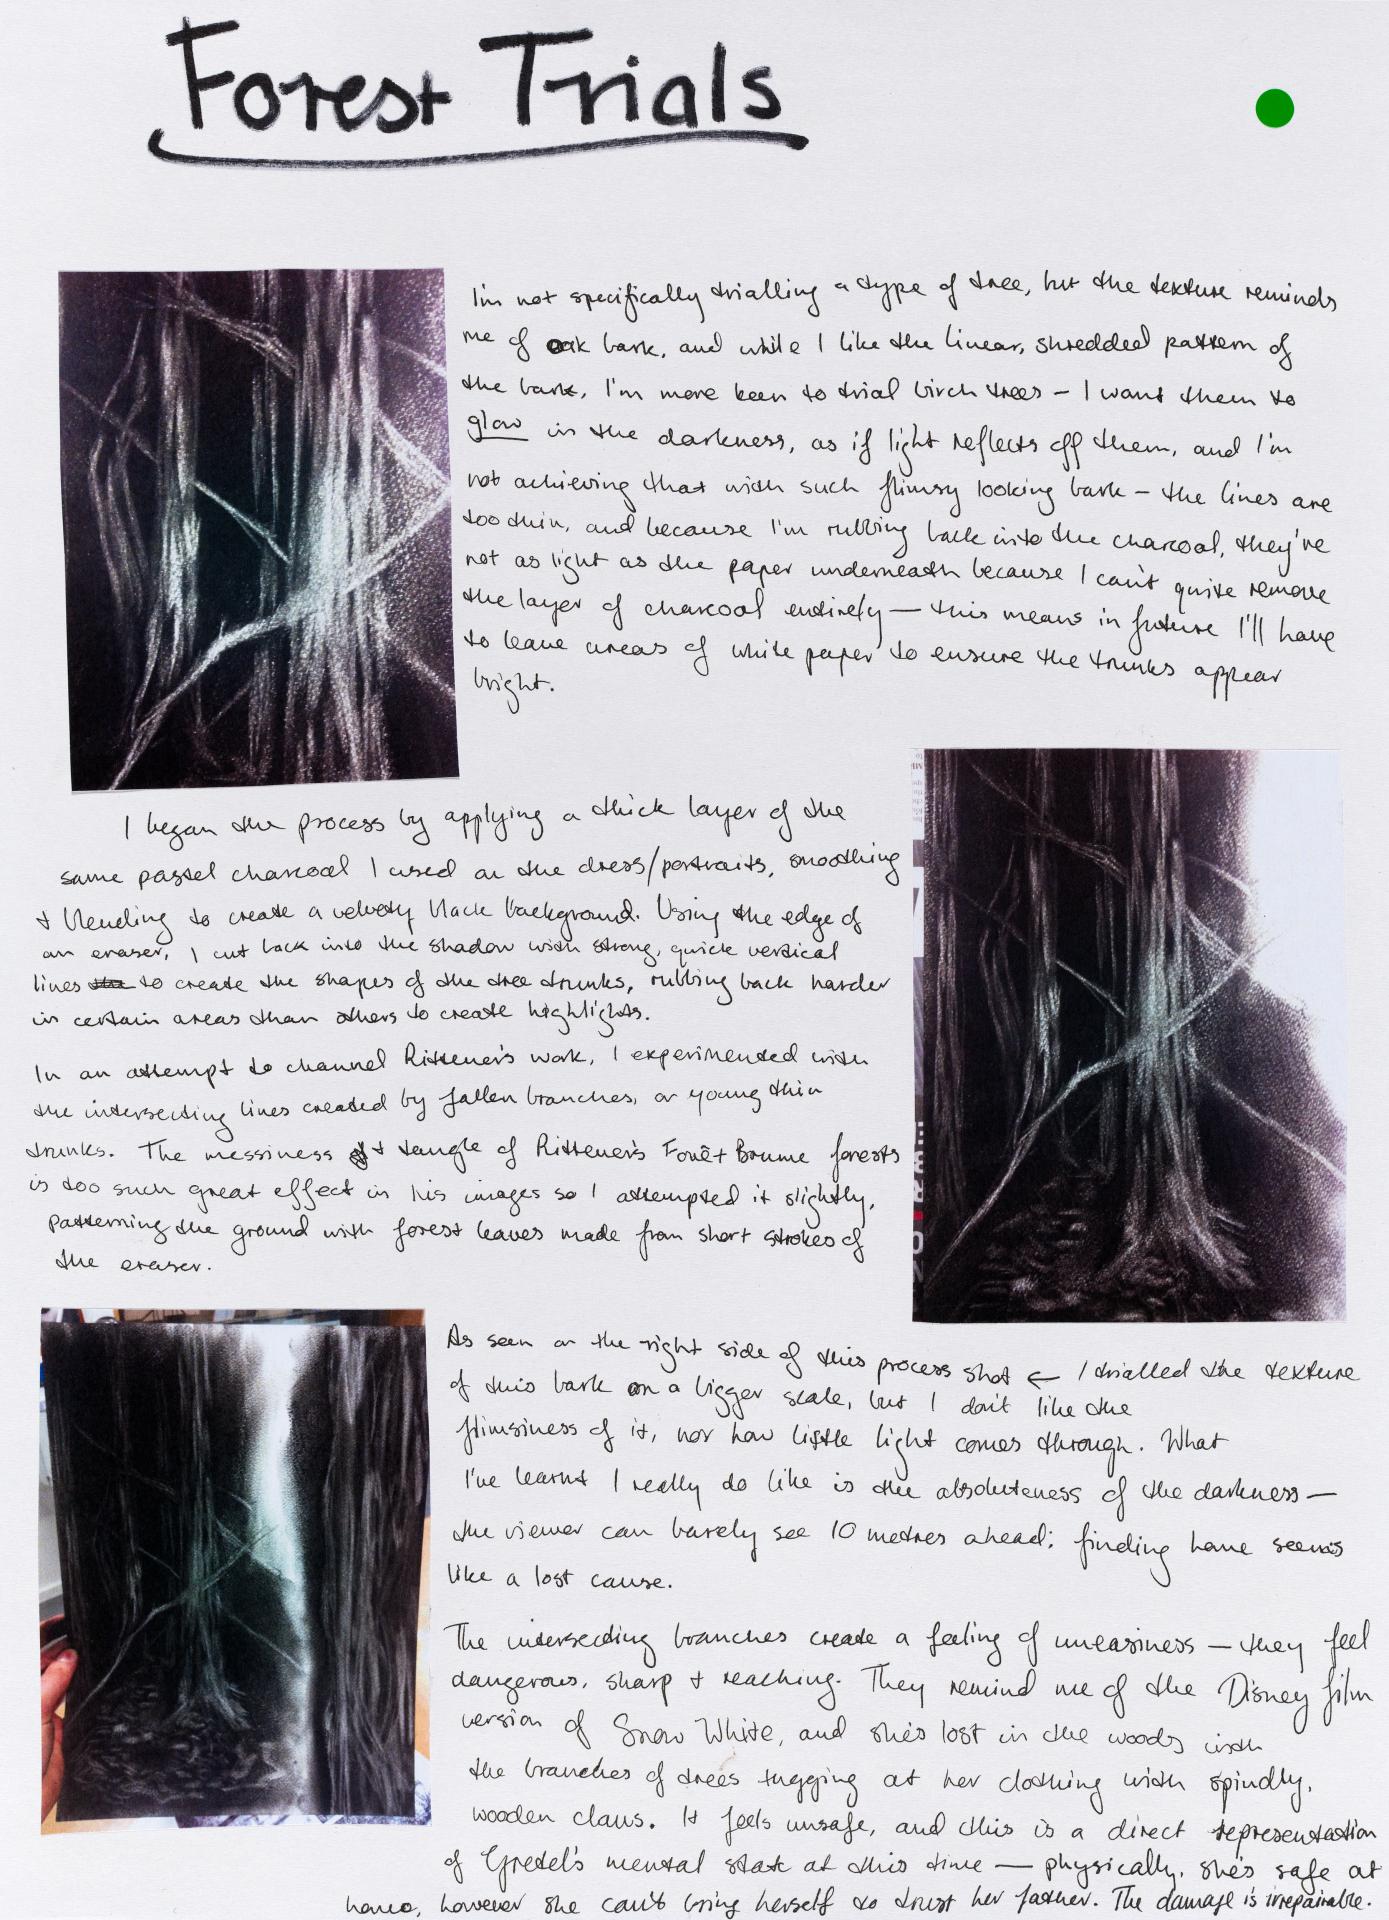 Forest Trials
I'm not specifically trialling a type of tree, but the texture reminds
me of oak bark, and while I like the linear, shredded pattern of
the bark, I'm more keen to trial birch trees – I want them to
glow in the darkness, as if light reflects off them, and I'm
not achieving that with such flimsy looking bark – the lines are
too thin, and because I'm rubbing back into the charcoal, they're
not as light as the paper underneath because I can't quite remove
the layer of charcoal entirely – this means in future I'll have
to leave areas of white paper to ensure the trunks appear
bright.
I began the process by applying a thick layer of the
same pastel charcoal I used on the dress/portraits, smoothing
+ blending to create a velvety black background. Using the edge of
an eraser, I cut back into the shadow with strong, quick vertical
lines to create the shapes of the tree trunks, rubbing back harder
in certain areas than others to create highlights.
In an attempt to channel Rittener's work, I experimented with
the intersecting lines created by fallen branches, or young thin
trunks. The messiness + tangle of Rittener's Forêt Brume forests
is too such great effect in his images so I attempted it slightly,
patterning the ground with forest leaves made from short strokes of
the eraser.
As seen on the right side of this process shot ← I trialled the texture
of this bark on a bigger scale, but I don't like the
flimsiness of it, nor how little light comes through. What
I've learnt I really do like is the absoluteness of the darkness –
the viewer can barely see 10 metres ahead; finding home seems
like a lost cause.
The intersecting branches create a feeling of uneasiness – they feel
dangerous, sharp + reaching. They remind me of the Disney film
version of Snow White, and she's lost in the woods with
the branches of trees tugging at her clothing with spindly,
wooden claws. It feels unsafe, and this is a direct representation
of Gretel's mental state at this time – physically, she's safe at
home, however she can't bring herself to trust her father. The damage is irrepairable.